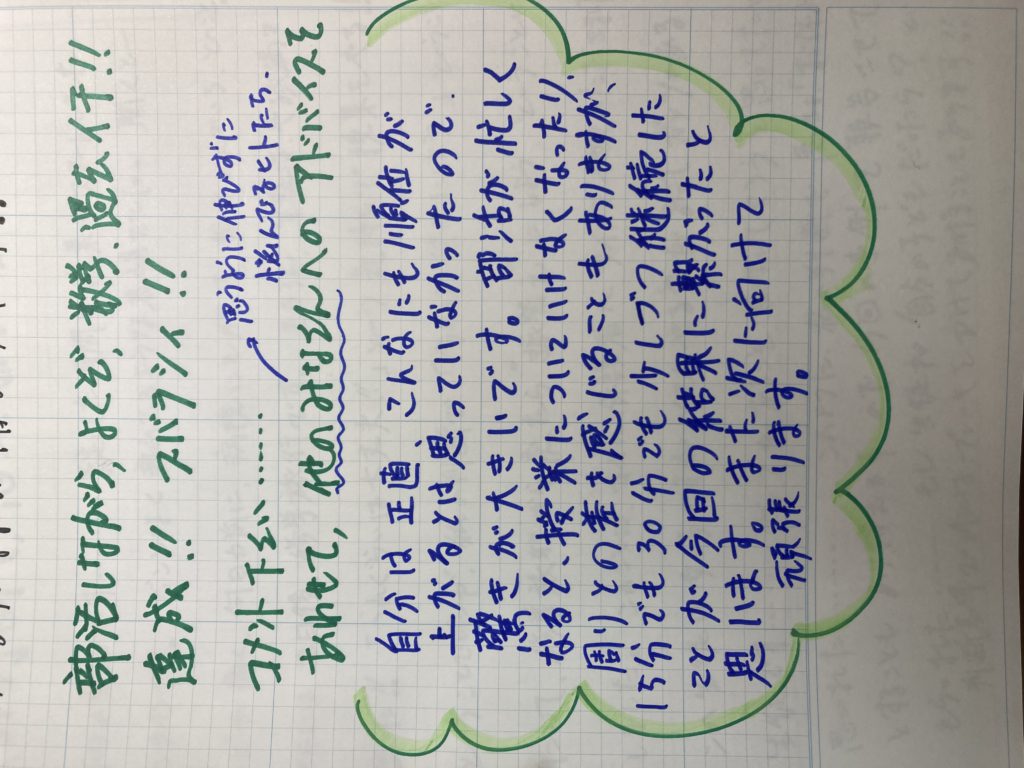 部活しながら、よくぞ、数学、過去イチ!!
達成!! スバラシイ!!
コメント下さい……
思うように伸びずに
悩んでるヒトたち、
あわせて、他のみなさんへのアドバイスを
自分は正直、こんなにも順位が
上がるとは思っていなかったので、
驚きが大きいです。部活が忙しく
なると、授業についていけなくなったり、
周りとの差を感じることもありますが、
15分でも30分でも少しづつ継続した
ことが今回の結果に繋がったと
思います。また次に向けて
頑張ります。